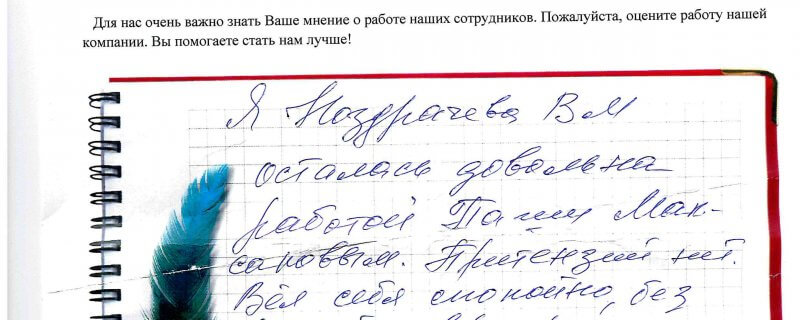 Для нас очень важно знать Ваше мнение о работе наших сотрудников. Пожалуйста, оцените работу нашей
компании. Вы помогаете стать нам лучше!
Я Ноздрачева В М
осталась довольна
работой Паши Мак-
сановым. Притензий нит.
Вёл себя спокойно, без